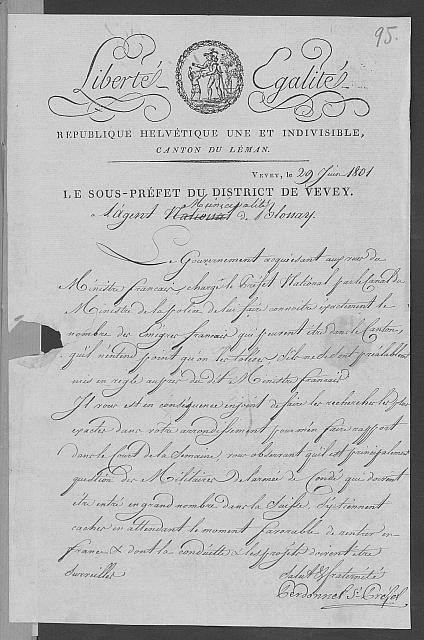 95.
Liberté Egalité
REPUBLIQUE HELVÉTIQUE UNE ET INDIVISIBLE,
CANTON DU LÉMAN.
VEVEY, le 29 Juin 1801
LE SOUS-PRÉFET DU DISTRICT DE VEVEY.
Municipalité
à l'agent National de Blonay.
Le Gouvernement acquiesant au
Ministre français, chargé le Préfet National par le Canal du
Ministre de la police de lui faire connaitre exactement le
nombre des Emigrés français qui peuvent être dans le Canton,
qu'il n'entend point qu'on les tolère, s'ils ne se sont préalablemt
mis en regle aupres du dit Ministre français
Il vous est en conséquence enjoint de faire les recherches les plus
exactes dans votre arrondissement pour m'en faire rapport
dans le Court de la Semaine, vous observant qu'il est principalement
question des Militaires de l'armée de Condé qui doivent
être entré en grand nombre dans la Suisse, s'y tiennent
cachés en attendant le moment favorable de rentrer en
france & dont la conduite & les projets doivent être
surveillés
Salut & fraternité
Perdonnet S. Préfet.